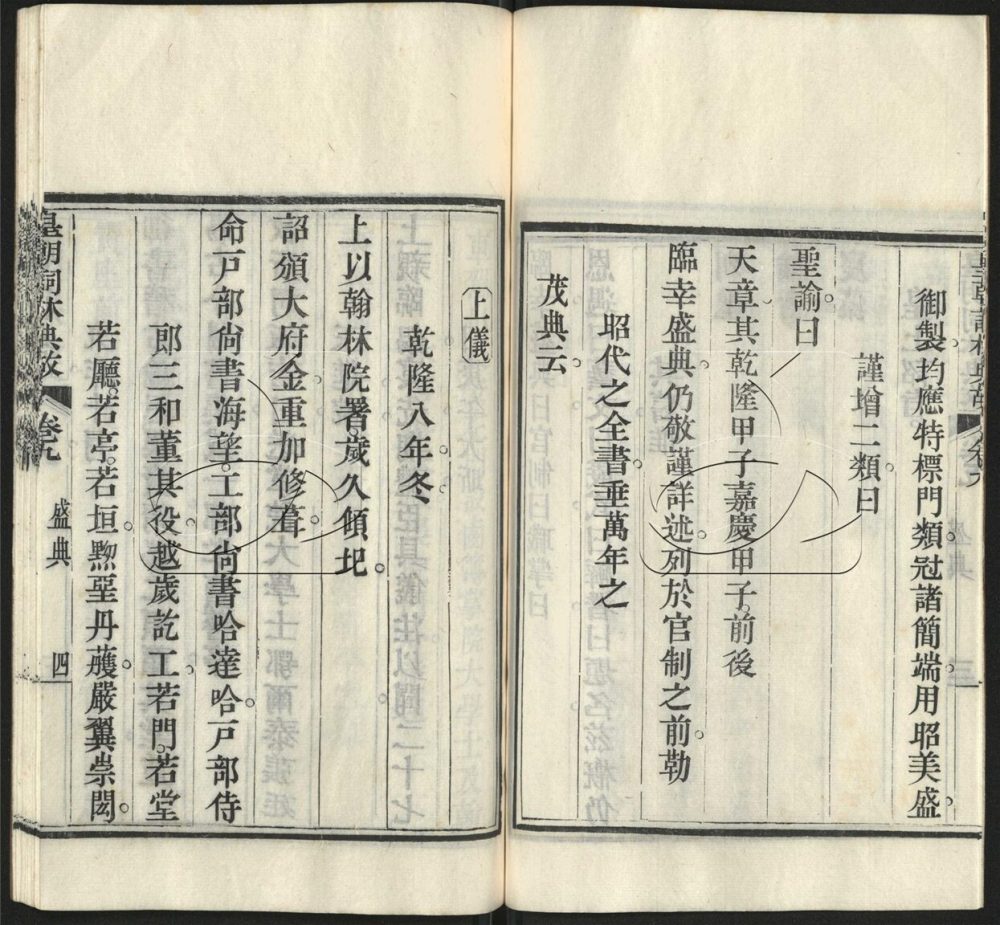 御製。均應特標門類。冠諸簡端。用昭美盛。
謹增二類。曰
聖諭。曰
天章。其乾隆甲子嘉慶甲子。前後
臨幸盛典。仍敬謹詳述。列於官制之前。勒
昭代之全書。垂萬年之
茂典云。
上儀
乾隆八年。冬。
上以翰林院署。歲久傾圯。
詔頒大府金。重加修葺。
命戶部尙書海望。工部尙書哈達哈。戶部侍
郎三和董其役。越歲訖工。若門。若堂
若廳。若亭。若垣。黝堊丹雘。嚴翼崇閎。
皇朝詞林典故
卷九
盛典
四